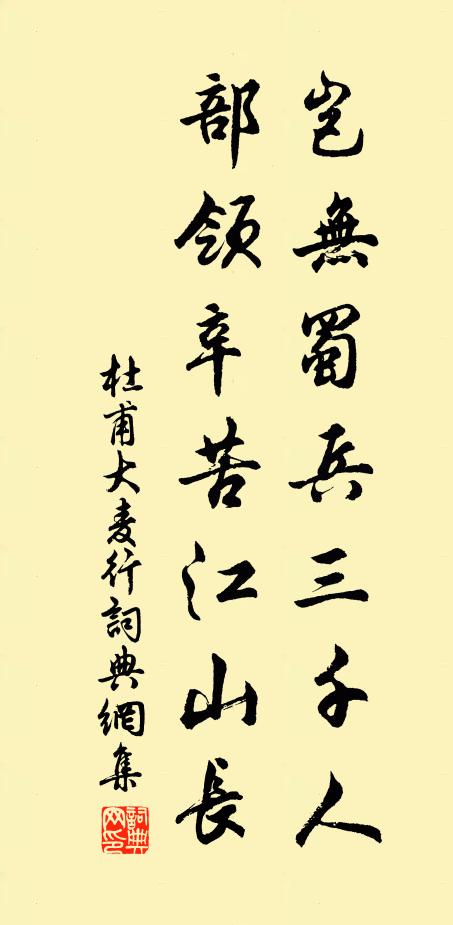 豈無蜀兵三千人
部領辛苦江山長
杜甫大麦行詞典網集
詞典
网印